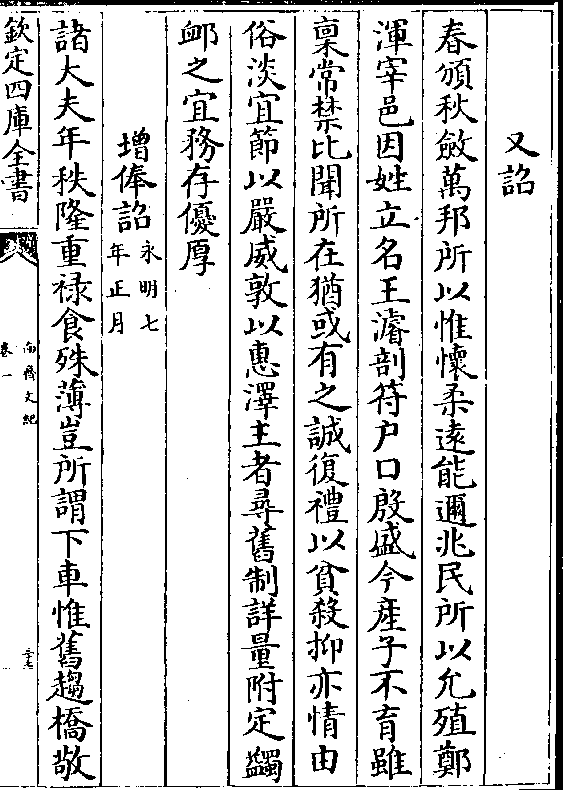 又詔
春頒秋斂萬邦所以惟懷柔逺能邇兆民所以允殖鄭
渾宰邑因姓立名王濬剖符户口殷盛今産子不育雖
稟常禁比聞所在猶或有之誠復禮以貧殺抑亦情由
俗淡宜節以嚴威敦以惠澤主者尋舊制詳量附定蠲
䘏之宜務存優厚
增俸詔永明七年正月
諸大夫年秩隆重禄食殊薄豈所謂下車惟舊趨橋敬
欽定四庫全書
南齊文紀
卷一